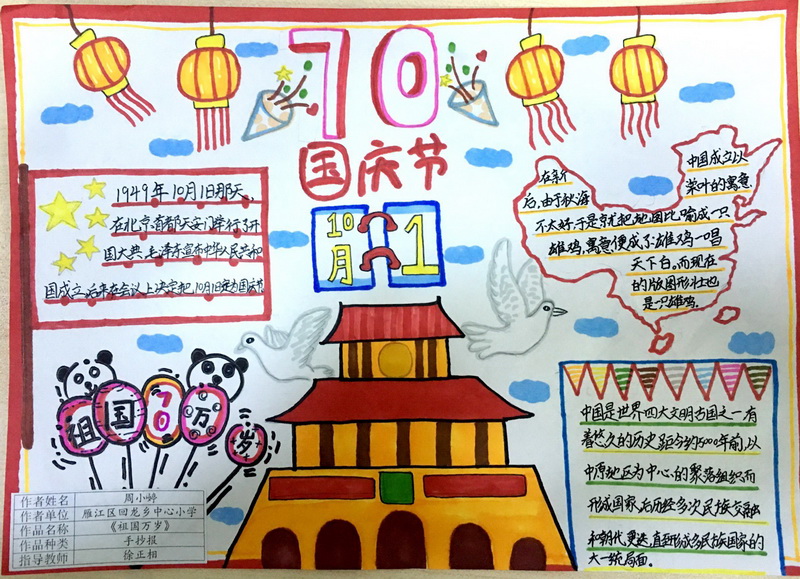 70
国庆节
10月 1
1949年10月1日那天,
在北京首都天安门举行了开
国大典,毛泽东宣布中华人民共和
国成立,后来在会议上决定把10月1日定为国庆节
在新
中国成立以
后,由于秋海
棠叶的寓意
不太好,于是就把地图比喻成一只
雄鸡,寓意便成了:雄鸡一唱
天下白。而现在
的版图形状也
是一只雄鸡.
祖国70万岁
中国是世界四大文明古国之一有
着悠久的历史,距今约5000年前,以
中原地区为中心的聚落组织而
形成国家,后历经多次民族交融
和朝代更迭,直至形成多民族国家的
大一统局面。
作者姓名 周小婷
作者单位 雁江区回龙乡中心小学
作品名称 《祖国万岁》
作品种类 手抄报
指导教师 徐正相